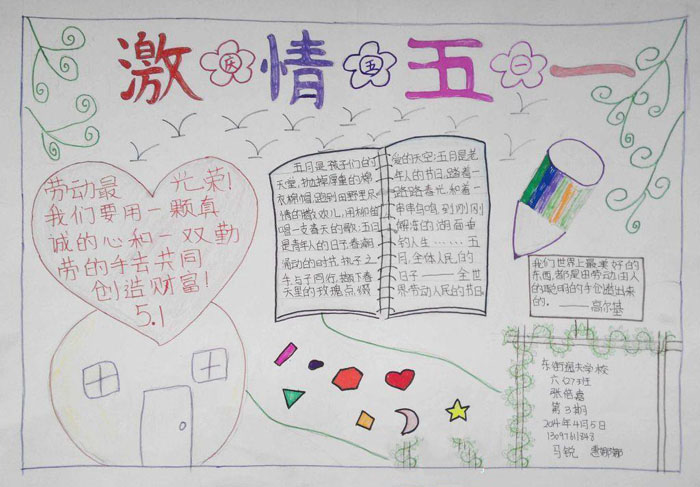 激 庆 情 五 五 一 一
劳动最 光荣!
我们要用一颗真
诚的心和一双勤
劳的手去共同
创造财富!
5.1
五月是孩子们的
天堂,抛掉厚重的棉
衣棉帽,跑到田野里尽
情的撒欢儿,用柳笛
唱一支春天的歌;五月
是青年人的日子,春潮
涌动的时节,执子之
手,与子同行,撷下春
天里的玫瑰点缀
爱的天空;五月是老
年人的节日,踏着一
路踏春花,和着一
串串鸟鸣,到刚刚
解冻的湖面垂
钓人生……五
月,全体人民的
日子——全世
界劳动人民的节日
我们世界上最美好的
东西,都是由劳动、由人
的聪明的手创造出来
的。——高尔基
东街逸夫学校
六(2)班
张倍嘉
第3期
2014年4月5日
马锐